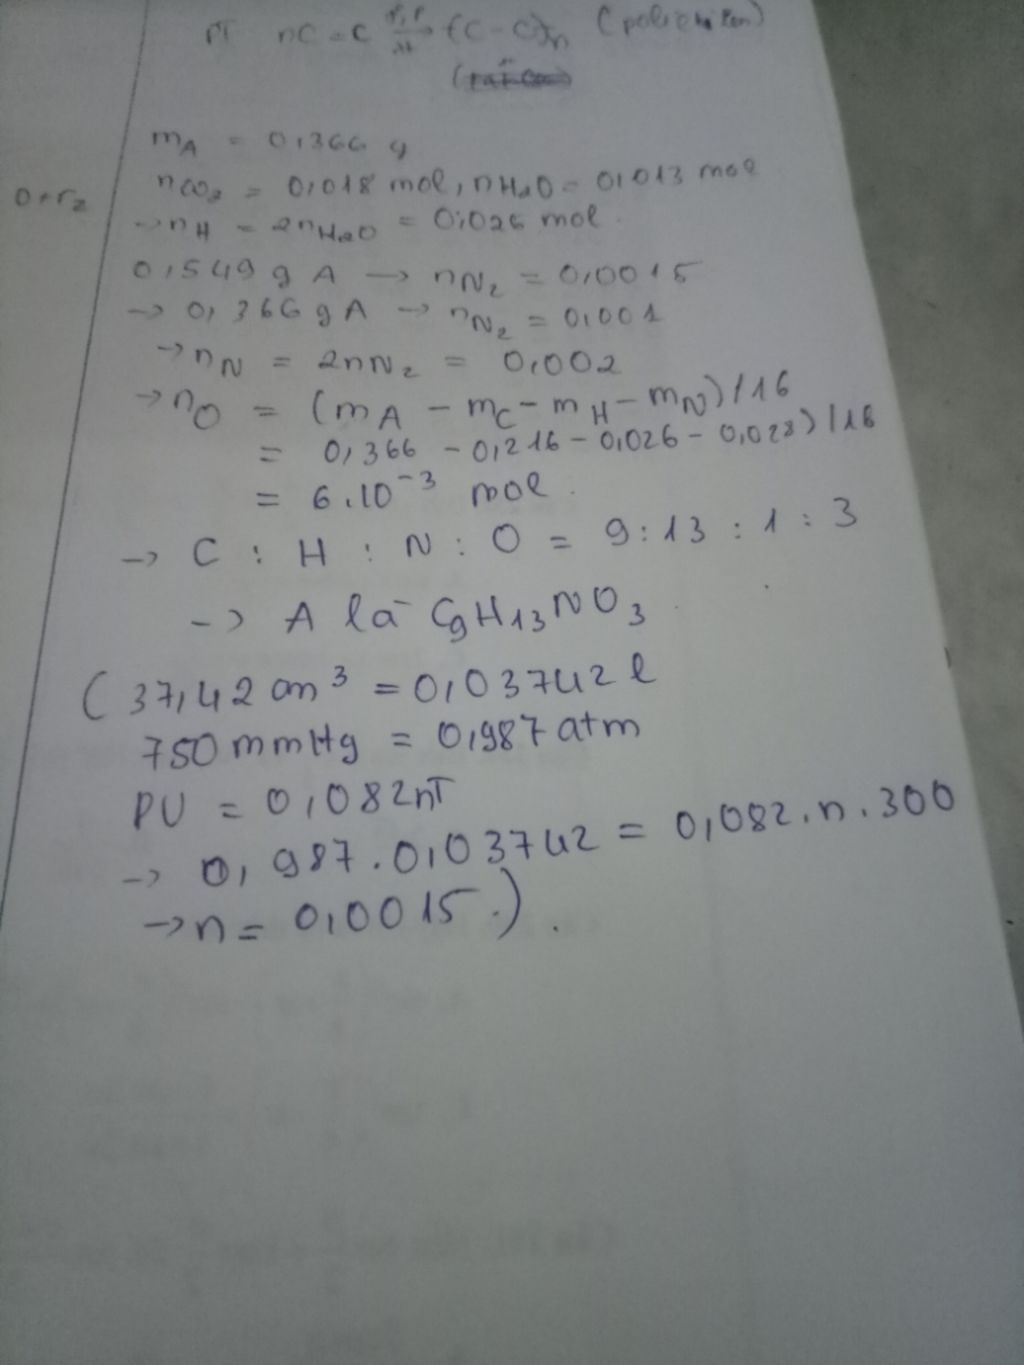 PT nC=C t°,P→xt (C-C)n (polietilen)
mA = 0,366 g
nCO2 = 0,018 mol, nH2O = 0,013 mol
→ nH = 2nH2O = 0,026 mol.
0,549 g A → nN2 = 0,0015
→ 0,366 g A → nN2 = 0,001
→ nN = 2nN2 = 0,002
→ nO = (mA - mC - mH - mN)/16
= 0,366 - 0,216 - 0,026 - 0,028)/16
= 6.10⁻³ mol.
→ C : H : N : O = 9 : 13 : 1 : 3
→ A là C9H13NO3.
(37,42 cm³ = 0,03742 l
750 mmHg = 0,987 atm
PV = 0,082nT
→ 0,987.0,03742 = 0,082.n.300
→ n = 0,0015.).